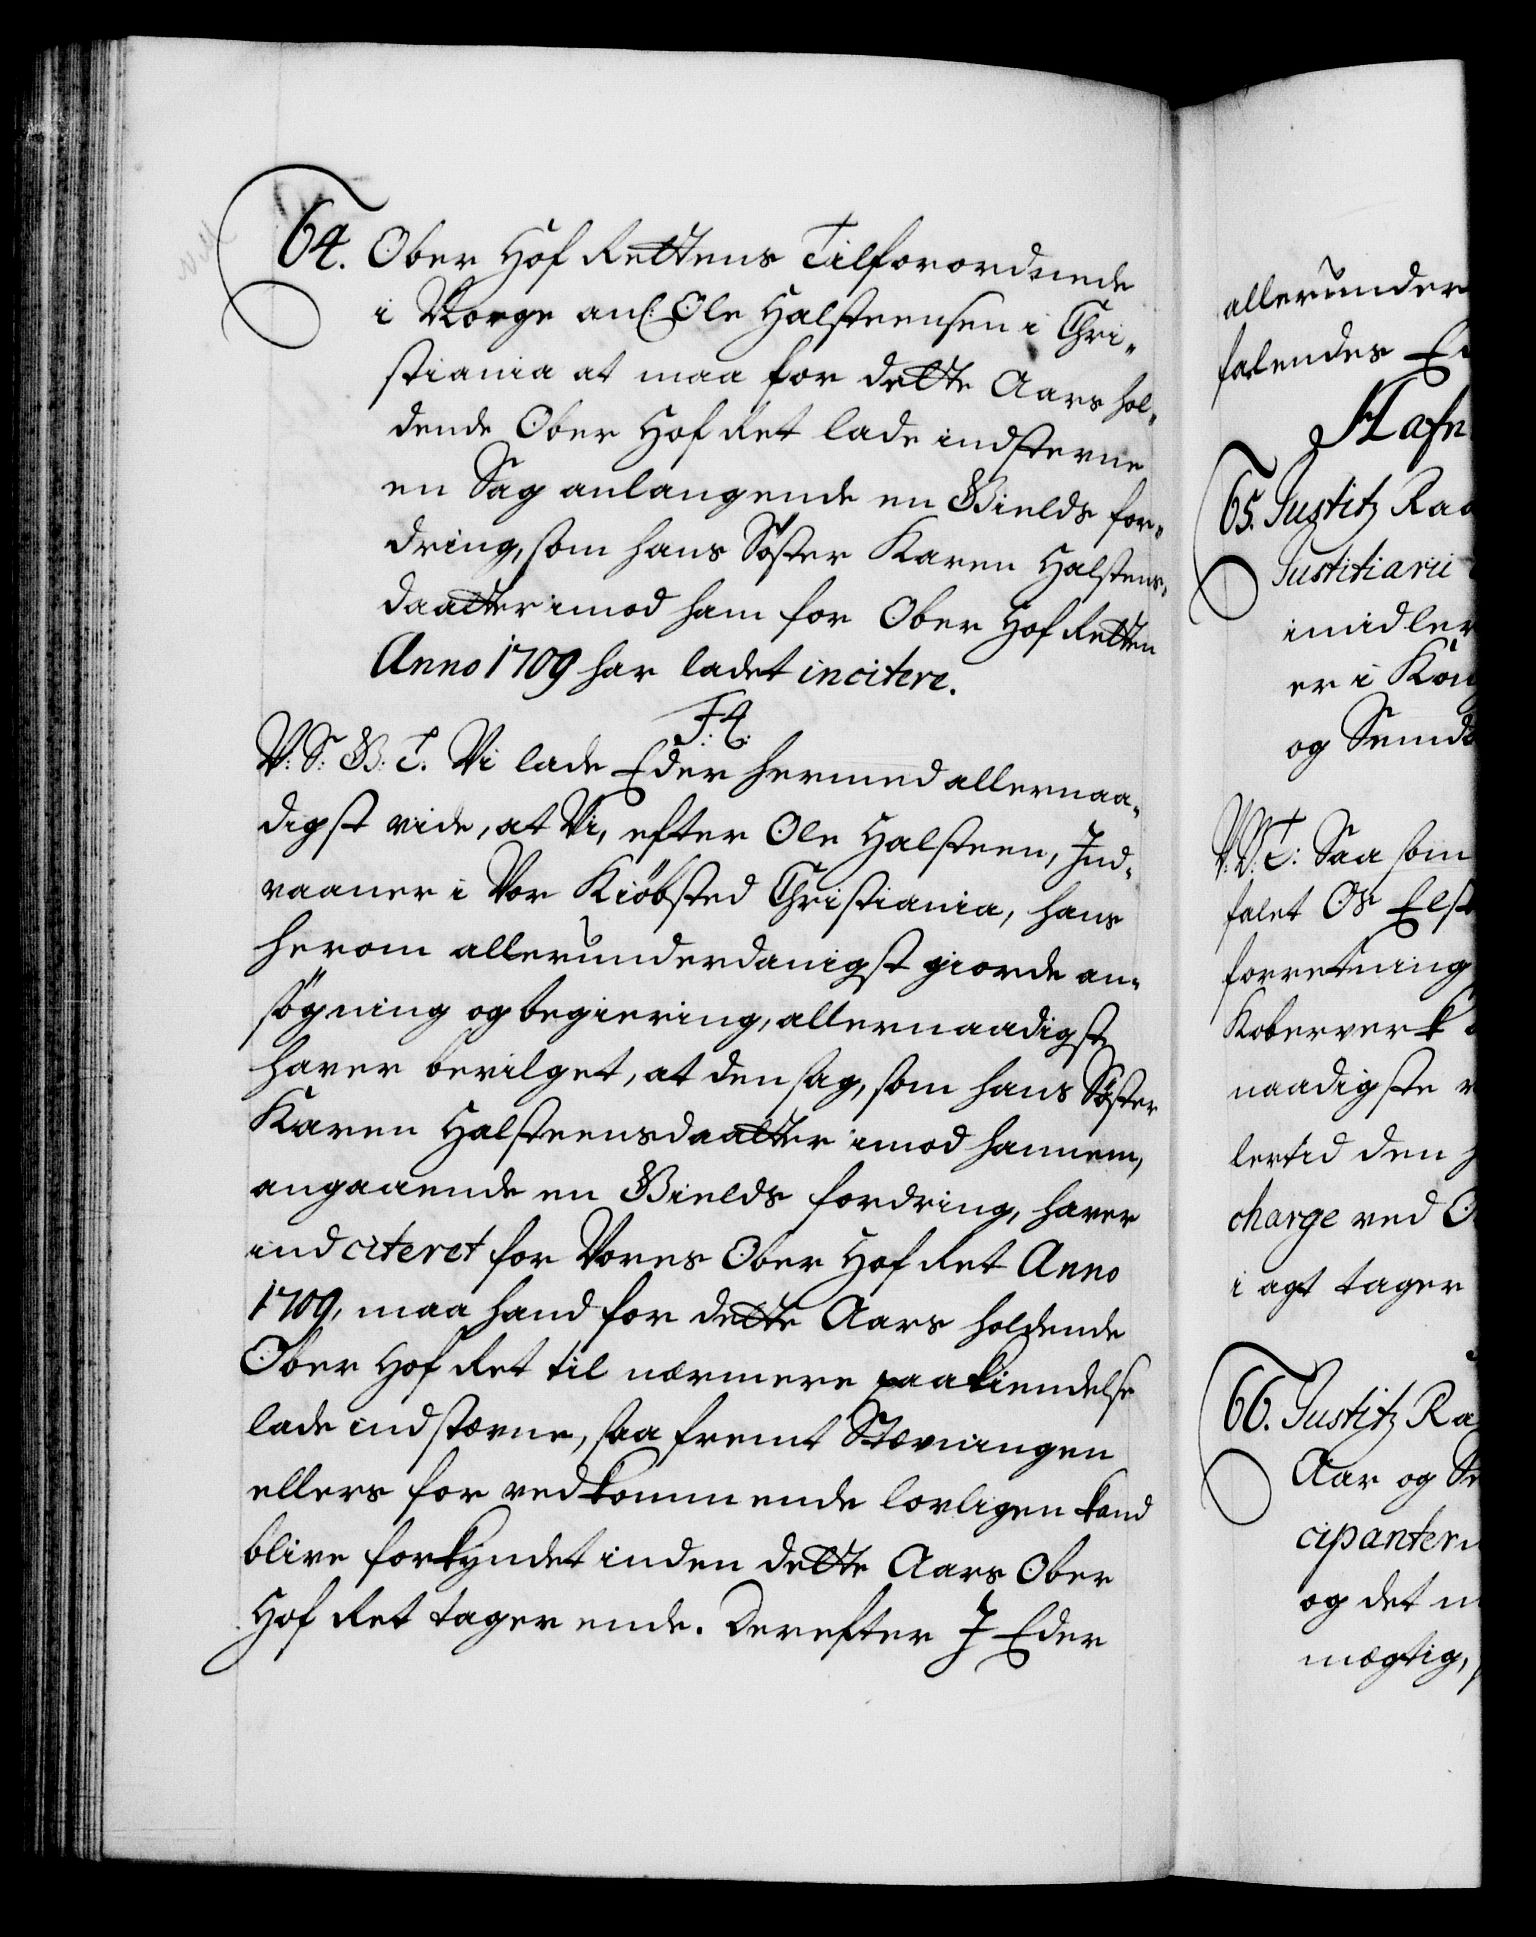 64. Ober Hof Rettens Tilforordnede
i Norge anl: Ole Halsteensen i Chri-
stiania at maa for dette Aars hol-
dende Ober Hof Ret lade indsterne
en Sag anlangende en Gields for-
dring, som hans Søster Karen Halstens-
daatter imod ham for Ober Hof Retten
Anno 1709 har ladet incitere.
F. 4.
V: S: G: T. Vi lade Eder hermed allernaa-
digst vide, at Vi, efter Ole Halsteen, Ind-
vaaner i Vor Kiøbsted Christiania, hans
herom allerunderdanigst giorde an-
søgning og begiering, allernaadigst
haver bevilget, at den sag, som hans Søster
Karen Halsteensdaatter imod hannem,
angaaende en Gields fordring, haver
ind citeret for Vores Ober Hof Ret Anno
1709, maa hand for dette Aars holdende
Ober Hof Ret til nærmere paakiendelse
lade indstævne, saa fremt Stævningen
ellers for vedkommende lovligen kand
blive forkyndet inden dette Aars Ober
Hof Ret tager ende. Derefter I Eder
allerunder
falendes
Hafn
65. Justitz Raa
Justitiarii
imidler
er i Kon
og Semd
V. V. T: Saa som
falet Os Elst
forretning
Koberverk
naadigste
lertid den
charge ved
i agt tager
66. Justitz Ra
Aar og
cipantern
og det
mægtig,